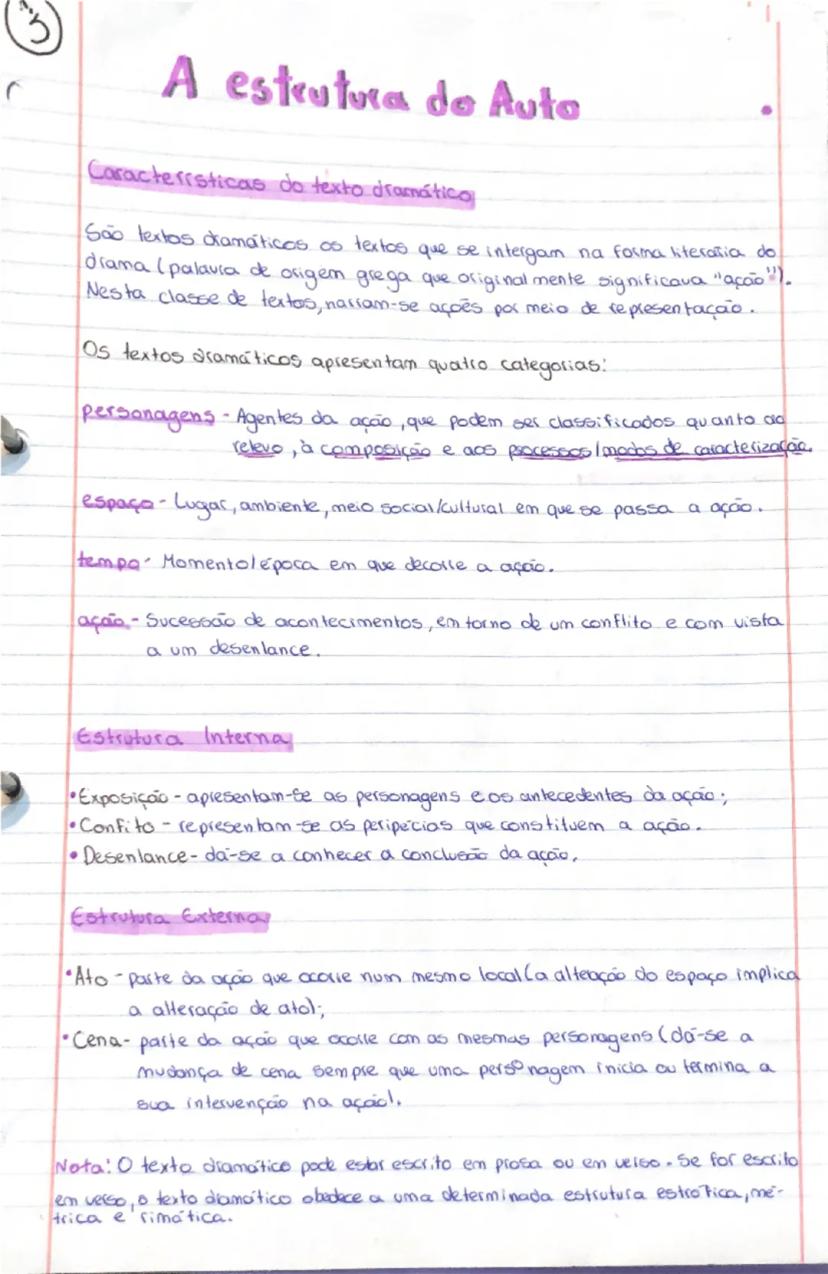 3
A estrutura do Auto
Características do texto dramático
São textos dramáticos os textos que se intergam na forma literária do
drama (palavra de origem grega que originalmente significava "ação").
Nesta classe de textos, narram-se ações por meio de representação.
Os textos dramáticos apresentam quatro categorias:
personagens - Agentes da ação, que podem ser classificados quanto ao
relevo, à composição e aos processos/modos de caracterização.
espaço - Lugar, ambiente, meio social/cultural em que se passa a ação.
tempo - Momento/época em que decorre a ação.
ação - Sucessão de acontecimentos, em torno de um conflito e com vista
a um desenlance.
Estrutura Interna
• Exposição - apresentam-se as personagens e os antecedentes da ação;
• Confito - representam-se as peripécias que constituem a ação.
• Desenlance - dá-se a conhecer a conclusão da ação.
Estrutura Externa
• Ato - parte da ação que ocorre num mesmo local (a alteação do espaço implica
a alteração de ato);
• Cena - parte da ação que ocorre com as mesmas personagens (dá-se a
mudança de cena sempre que uma personagem inicia ou termina a
sua intervenção na ação).
Nota: O texto dramático pode estar escrito em prosa ou em verso. Se for escrito
em verso, o texto dramático obedece a uma determinada estrutura estrófica, mé-
trica e rimática.